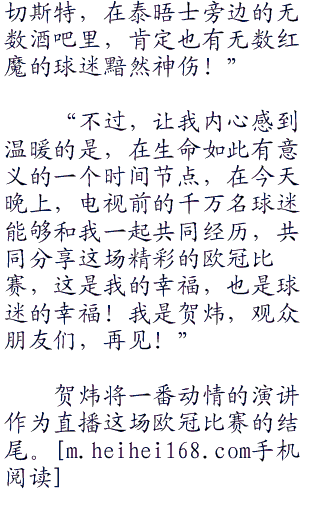 切斯特，在泰晤士旁边的无
数酒吧里，肯定也有无数红
魔的球迷黯然神伤！”
“不过，让我内心感到
温暖的是，在生命如此有意
义的一个时间节点，在今天
晚上，电视前的千万名球迷
能够和我一起共同经历，共
同分享这场精彩的欧冠比
赛，这是我的幸福，也是球
迷的幸福！我是贺炜，观众
朋友们，再见！”
贺炜将一番动情的演讲
作为直播这场欧冠比赛的结
尾。[m.heihei168.com手机
阅读]